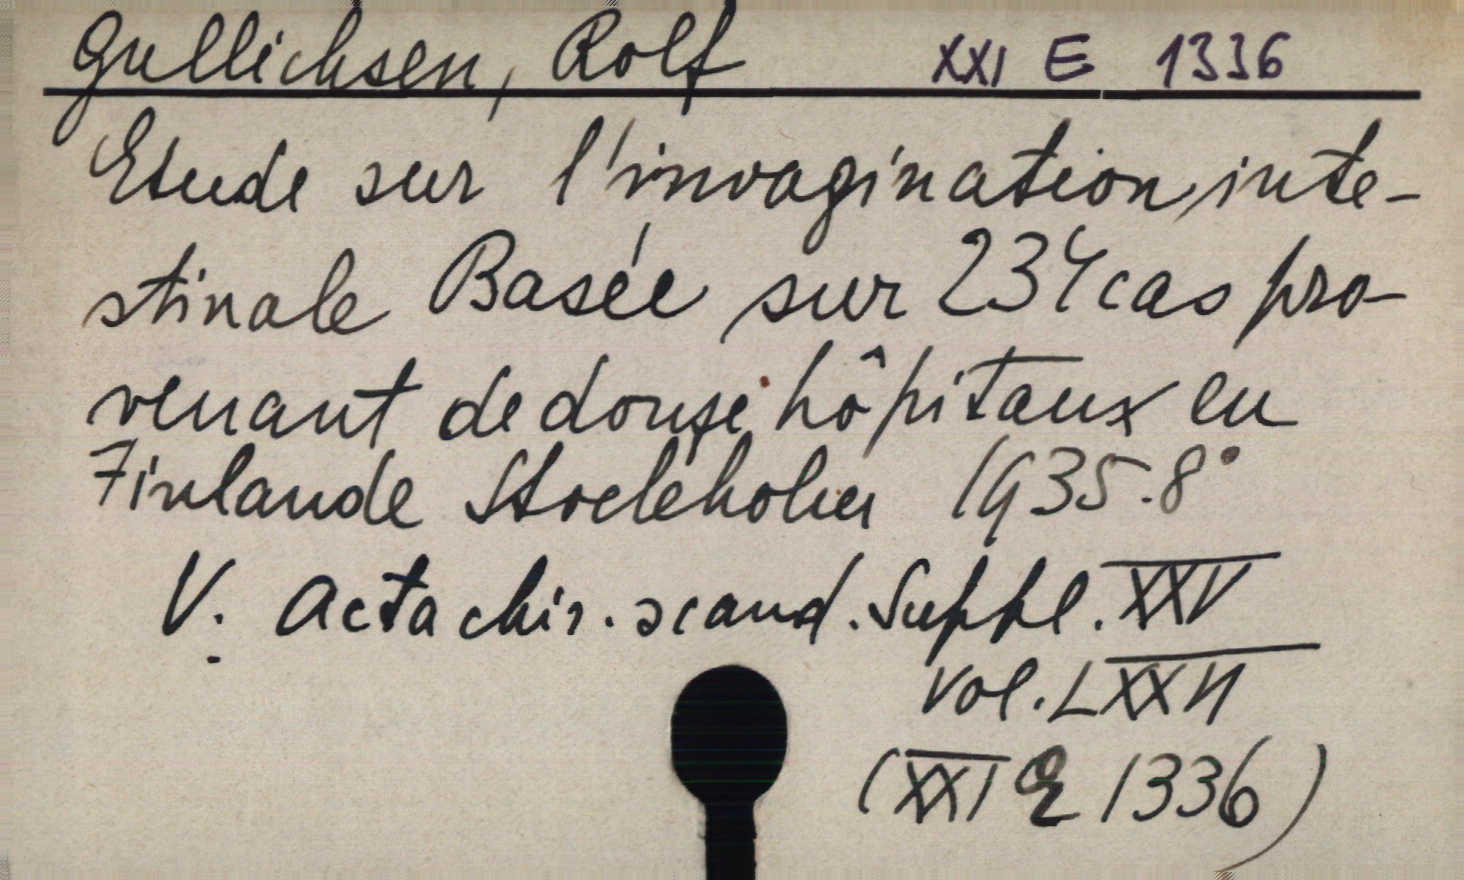 Gullichsen, Rolf XXI E 1336
Etude sur l'invagination inte-
stinale Basée sur 234 cas pro-
venant de douze hôpitaux en
Finlande Stockholm 1935.8°
V. Acta chir. scand. Suppl. XXV
vol. LXXVI
(XXI E 1336)